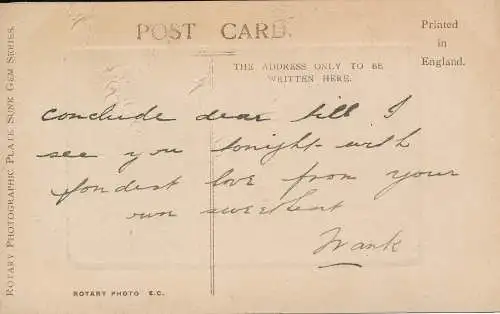 POST CARD.
Printed
in
England.
THE ADDRESS ONLY TO BE
WRITTEN HERE.
conclude dear till I
see you tonight with
fondest love from your
own sweetheart
Frank
ROTARY PHOTO E.C.
ROTARY PHOTOGRAPHIC PLATE SUNK GEM SERIES.